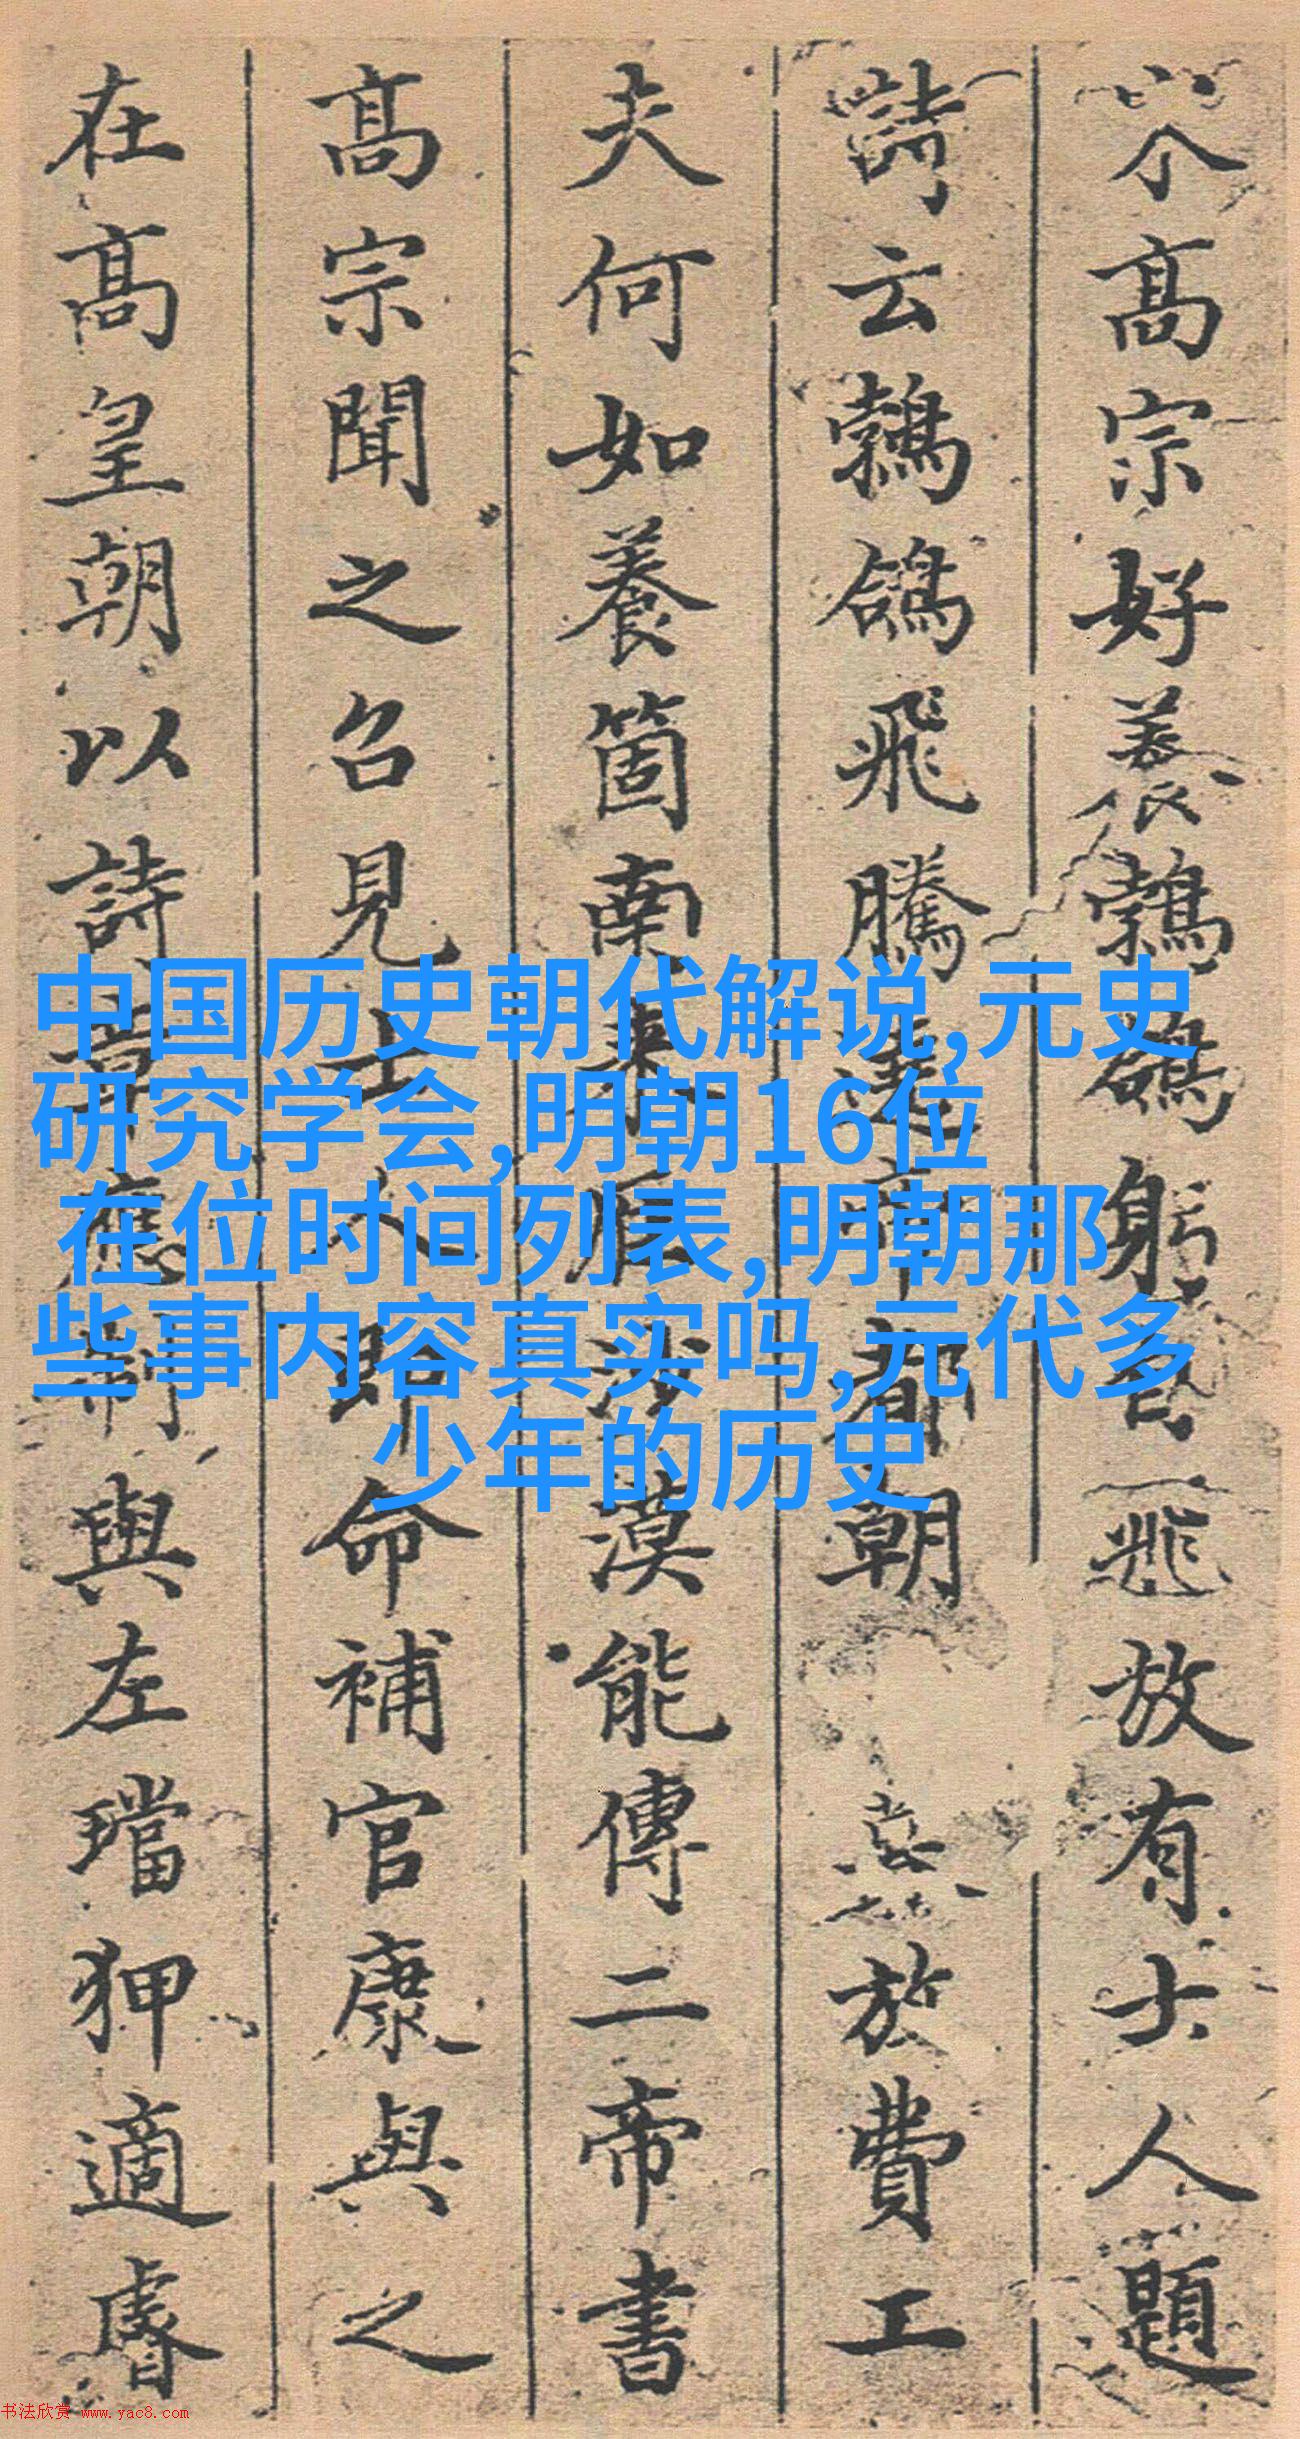 高宗好養鵓鴿躬飛放有士人題
詩云鵓鴿飛騰遶帝都朝放費工
夫何如養箇南來鴈沙漠能傳二帝書
高宗聞之召見士人即命補官康與之
在高皇朝以詩章應制與左璫狎適睿
中国历史朝代解说,元史
研究学会,明朝16位
在位时间列表,明朝那
些事内容真实吗,元代多
少年的历史
书法欣赏 www.yac8.com